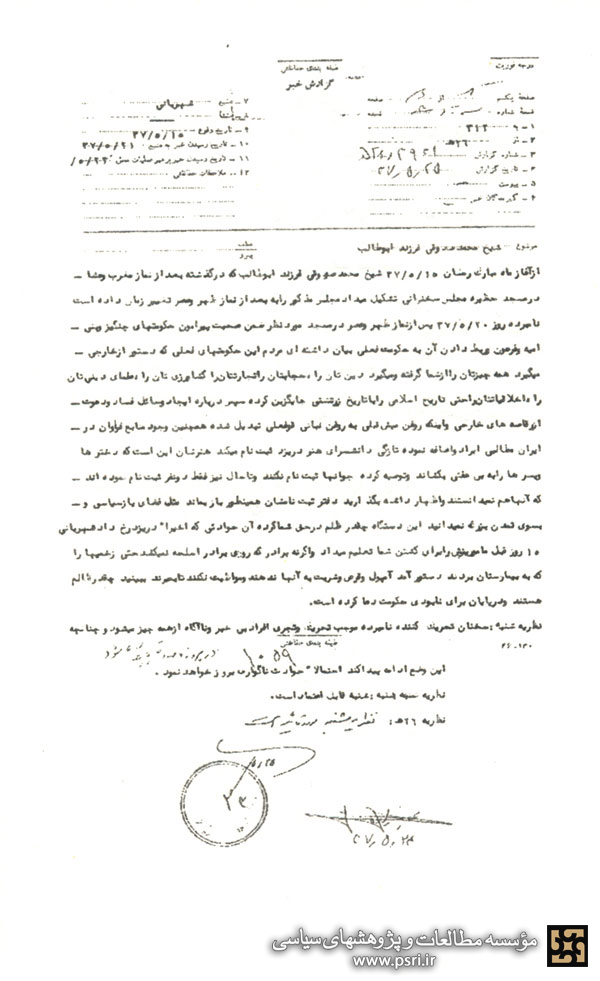 درجه فوریت
طبقه بندی حفاظتی
گزارش خبر
۱ ـ به ۳۱۲
۲ ـ از ۲۶ه‍
۳ ـ شماره گزارش
۴ ـ تاریخ گزارش ۳۷٫۵٫۲۵
۵ ـ پیوست
۶ ـ گیرندگان خبر
۷ ـ منبع شهربانی
۹ ـ تاریخ وقوع ۳۷/۵/۱۵
۱۰ ـ تاریخ رسیدن خبر به منبع ۳۷/۵/۲۱
۱۱ ـ تاریخ رسیدن خبر برهبر عملیات
۱۲ ـ ملاحظات حفاظتی
موضوع ـ شیخ محمد صدوقی فرزند ابوطالب
ازآغاز ماه مبارک رمضان ۳۷/۵/۱۵ شیخ محمد صدوقی فرزند ابوطالب که درگذشته بعد از نماز مغرب وعشا ـ
درمسجد حظیره مجلس سخنرانی تشکیل میداد مجلس مذکور رابه بعد از نماز ظهر وعصر تغییر زمان داده است
نامبرده روز ۳۷/۵/۲۰ پس ازنماز ظهر وعصر درمسجد موردنظر ضمن صحبت پیرامون حکومتهای چنگیز وبنی ـ
امیه وفرعون وربط دادن آن به حکومت فعلی بیان داشته ای مردم این حکومتهای فعلی که دستور ازخارجی ـ
میگیرد همه چیزتان راازشما گرفته ومیگیرد دین تان را ، حجابتان راتجارتتان راکشاورزی تان را ، علمای دینی تان
را ، اخلاقیاتتان راحتی تاریخ اسلامی راباتاریخ زرتشتی جایگزین کرده سپس درباره ایجاد وسائل فساد ودعوت ـ
ازرقاصه های خارجی واینکه روغن میش قبلی به روغن نباتی قوفعلی تبدیل شده همچنین وجود منابع فراوان در ـ
ایران مطالبی ایراد واضافه نموده تازگی دانشسرای هنر دریزد ثبت نام میکند هنرشان این است که دختر ها
وپسر ها رابه بی عفتی بکشاند وتوصیه کرده جوانها ثبت نام نکنند وتاحال نیز فقط دونفر ثبت نام نموده اند ـ
که آنهاهم نمیدانستند واظهار داشته بگذارید دفتر ثبت نامشان همینطور باز بماند مثل فضای بازسیاسی و ـ
بسوی تمدن بزرگ نمیدانید این دستگاه چقدر ظلم درحق شماکرده آن حوادثی که اخیرا" دریزدرخ داد شهربانی
۱۵ روز قبل مامورینش رابرای کشتن شما تعلیم میداد والاکه برادر که روی برادر اسلحه نمیکشد حتی زخمیها را
که به بیمارستان بردند دستور آمد آمپول وقرص وشربت به آنها ندهند ومواظبت نکنند تابمیرند ببینید چقدرظالم
هستند ودرپایان برای نابودی حکومت دعا کرده است.
نظریه شنبه : سخنان تحریک کننده نامبرده موجب تحریک وتجری افراد بی خبر وناآگاه ازهمه چیز میشود و چنانچه
طبقه بندی حفاظتی
۱۰۵۹
۳۶-۱۳۰
این وضع ادامه پیداکند احتمالا" حوادث ناگواری بروز خواهد نمود .
نظریه سه شنبه : شنبه قابل اعتماد است .
نظریه ۲۶ه‍ : نظریه شنبه مورد تائید است
۵٫۲۵
۲۶
۳۷٫۵٫۲۴
مؤسسه مطالعات و پژوهشهای سیاسی
www.psri.ir